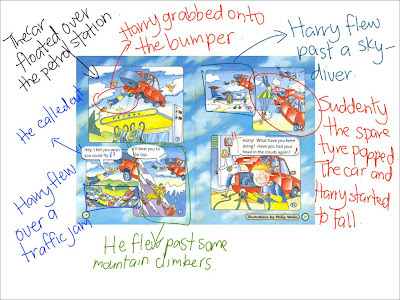 The car
floated over
the petrol station
Harry grabbed onto
the bumper
Harry flew
past a sky-
diver
He called out
Suddenly
the spare
tyre popped
the car and
Harry started
to fall
Harry flew
over a
traffic jam
He flew past some
mountain climbers
Hey, I bet you wish
you could fly.
I'll beat you to
the top.
Harry! What have you been
doing? Have you had your
head in the clouds again?
Illustrations by Philip Webb